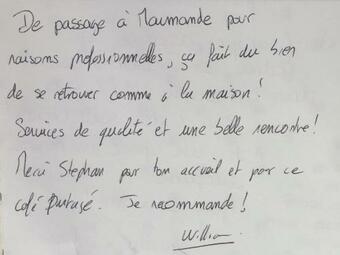 De passage à Marmande pour
raisons professionnelles, ça fait du bien
de se retrouver comme à la maison !
Services de qualité et une belle rencontre !
Merci Stephan pour ton accueil et par ce
café partagé. Je recommande !
William